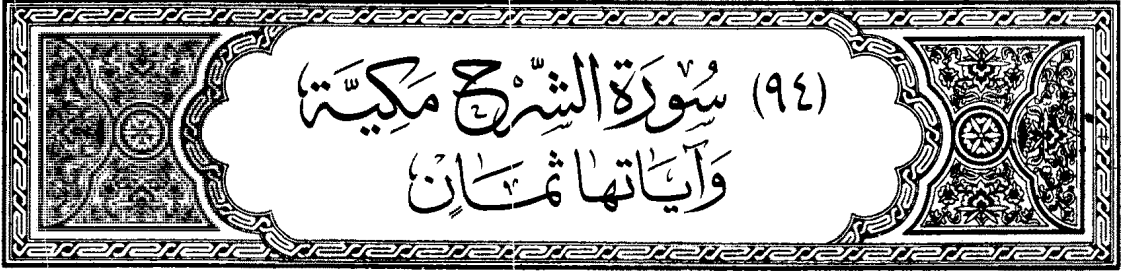 (٩٤) سُورَةُ الشَّرْحِ مَكِيَّة
وَآيَاتهَا ثَمَانٍ